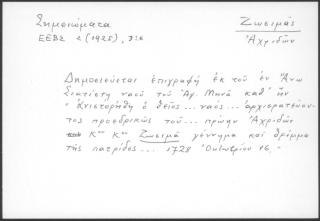 Σημειώματα
Ζωσιμᾶς
ΕΕΒΣ 2 (1925), 326
Ἀχριδῶν
Δημοσιεύεται ἐπιγραφή ἐκ τοῦ ἐν Ἄνω
Σιατίστῃ ναοῦ τοῦ Ἁγ. Μηνᾶ καθ' ἥν
"Ἀνιστορήθη ὁ θεῖος... ναός... ἀρχιερατεύον-
τος προεδρικῶς τοῦ... πρώην Ἀχριδῶν
κυ κυ Ζωσιμᾶ γέννημα καὶ θρέμμα
τῆς πατρίδος... 1728 Ὀκτωβρίου 16."